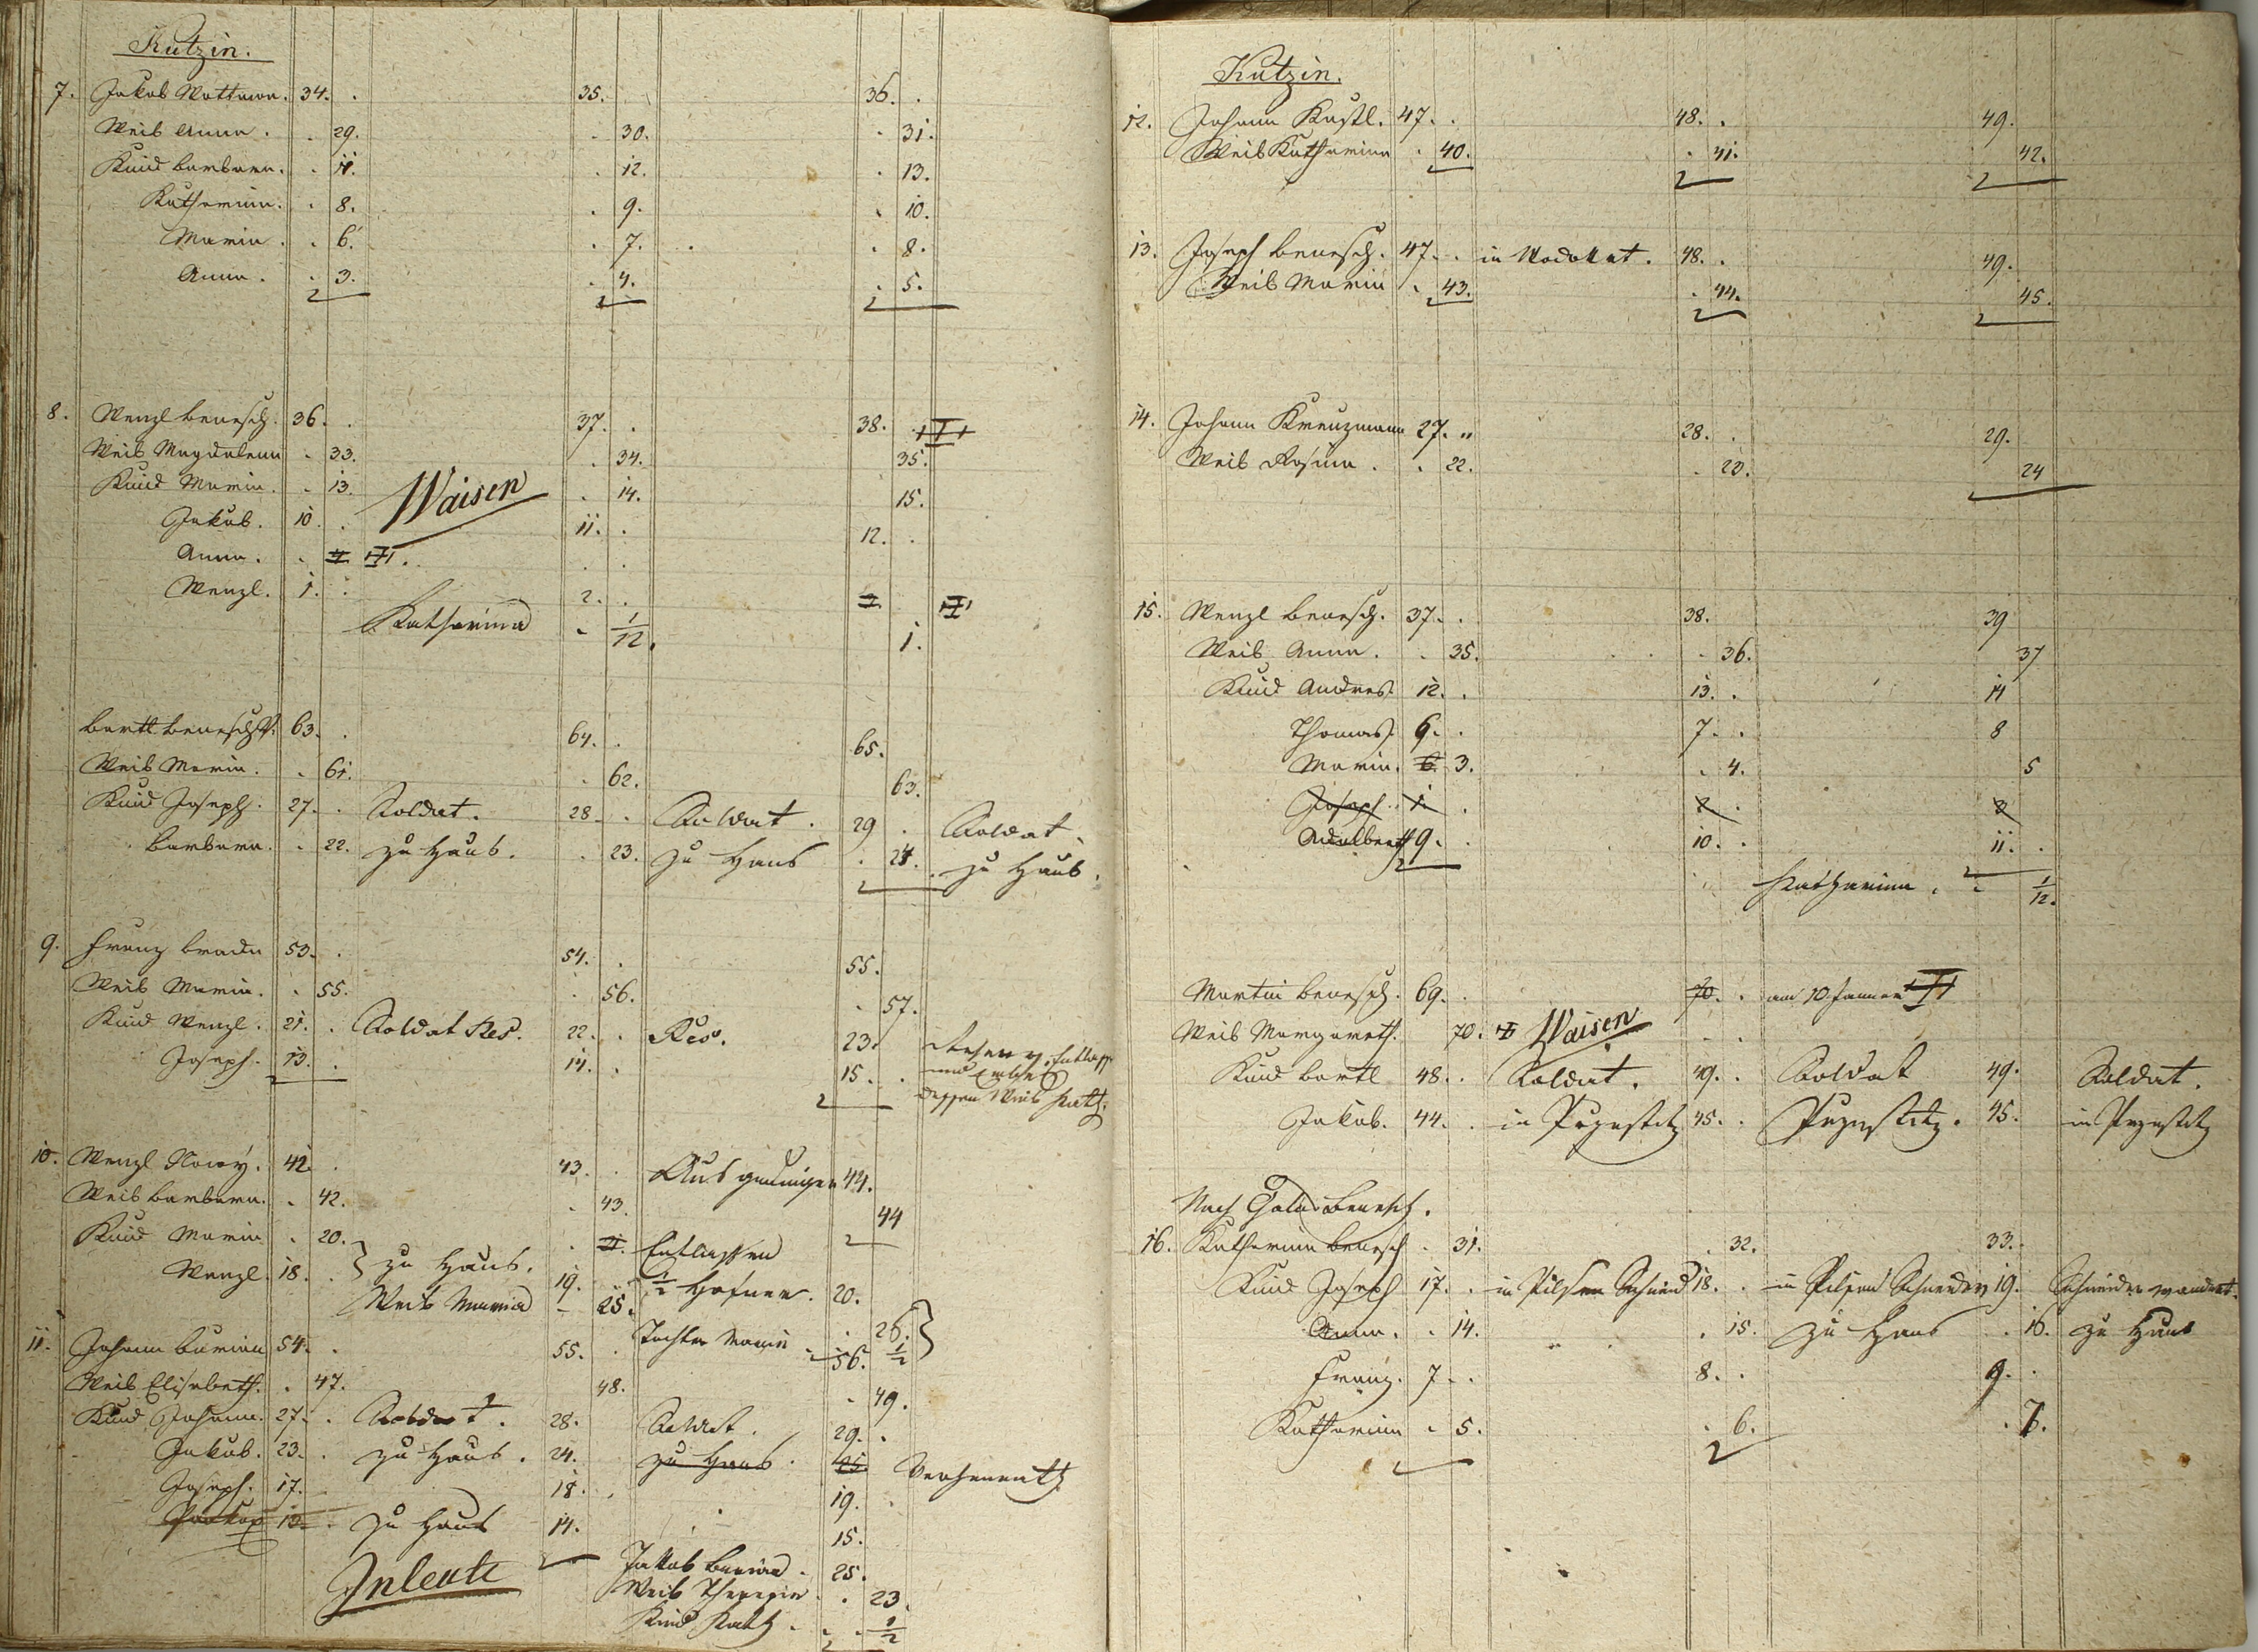 Kutzin.
7. Jakob Wottawa. 34. . 35. 36. .
Weib Anna. . 29. . 30. . 31.
Kind Barbara. . 11. . 12. . 13.
Katharina. . 8. . 9. . 10.
Maria. . 6. . 7. . . 8.
Anna. . 3. . 4. . 5.
8. Wenzl Benesch. 36. . 37. . 38.
Weib Magdalena . 33. . 34. 35.
Kind Maria. . 13. Waisen . 14. 15.
Jakob. 10. . 11. . 12. .
Anna. . 4
Wenzl. 1. . 2. .
Katharina . 1/12. 1.
Bartl Benesch 63. . 64. . 65.
Weib Maria. . 61. . 62. 63.
Kind Joseph. 27. . Soldat. 28. . Soldat. 29 . Soldat.
Barbara. . 22. zu Haus. . 23. zu Haus . 24. . zu Haus.
9. Franz Brada 53. . 54. . 55.
Weib Maria. . 55. . 56. . 57.
Kind Wenzl. 21. . Soldat Res. 22. . Res. 23.
Joseph. 13. . 14. . 15. . dessen Weib Kath.
10. Wenzl Nowy. 42. . 43. . Ausgedinger 44.
Weib Barbara. . 42. . 43. 44
Kind Maria . 20. . 21. Entlassen
Wenzl. 18. . } zu Haus. 19. 1/2 Hofner. 20.
Weib Maria – 25. 26. }
Tochter Maria 1/2
11. Johann Burian 54. . 55. . 56.
Weib Elisabeth. . 47. 48. . 49.
Kind Johann. 27. . Soldat. 28. Soldat. 29. .
Jakob. 23. . zu Haus. 24. zu Haus. 25.
Joseph. 17. . 18. . 19. .
Prokop 13. . zu Haus 14. 15.
Inleute
Jakob Burian. 25.
Weib Theresia . 23.
Kind Kath. . . 1/2
Kutzin.
12. Johann Kastl. 47. . 48. . 49.
Weib Katharina . 40. . 41. 42.
13. Joseph Benesch. 47. . in Wodokat. 48. . 49.
Weib Maria . 43. . 44. 45.
14. Johann Kreuzmann 27. „ 28. . 29.
Weib Rosina. . 22. . 23. 24
15. Wenzl Benesch. 37. . 38. 39
Weib Anna. . 35. . 36. 37
Kind Andreas 12. . 13. . 14
Thomas. 6. . 7. . 8
Maria. 6. 3. . 4. 5
Joseph. 1. . 2. . 3
Adalbert 9. . 10. . 11. .
Katharina. – 1/12.
Martin Benesch. 69. . 70. . am 10 Januar
Weib Margareth. 70. Waisen . .
Kind Bartl 48. . Soldat. 49. . Soldat 49. Soldat.
Jakob. 44. . in Przestitz 45. . Przestitz. 45. in Przestitz
Nach Galli Benesch.
16. Katharina Benesch . 31. . 32. 33.
Kind Joseph 17. . in Pilsen Schneid 18. . in Pilsen Schneider 19. Schneider wandert.
Anna. . 14. . 15. zu Haus . 16. zu Haus
Franz. 7. . 8. . 9. .
Katharina . 5. . 6. . 7.